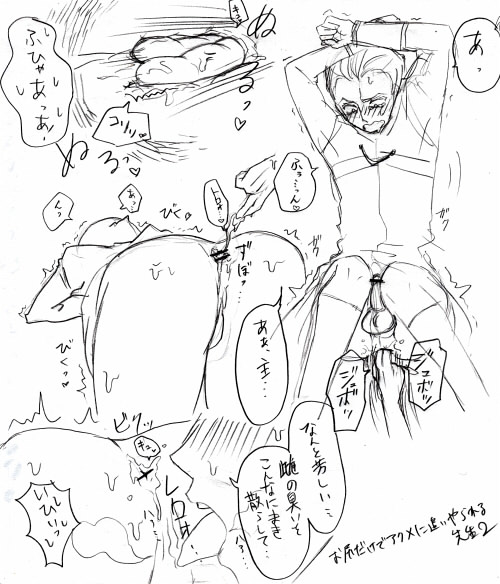 あっ
ふひゃあっあっ
ぬる
コリッ
ぬるっ♡
ふぅっんっ
あっ
くっ
びくっ
ずぼっ…
ガク
ガク
びくっ
ああ、主…
ジュボッ
ジュボッ
ビクッ
なんと芳しい…
雌の臭いを
こんなにまき
散らして…
レロォ
ハァ…
いひぃっ
お尻だけでアクメに追いやられる
先生2